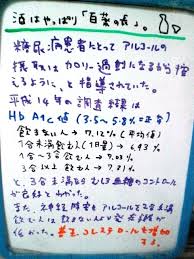 酒はやっぱり「百薬の長」。
糖尿病患者にとってアルコールの
摂取はカロリー過剰になるから控
えるように、と指導されていた。
平成14年の調査結果は
Hb A1c値 (3.5~5.8%正常)
飲まない人 → 7.12% (平均値)
1合未満飲む人(1日量) → 6.93%
1合~3合飲む人 → 7.03%
3合以上 → 7.
と、3合未満なら むしろ血糖のコントロール
が良好とわかった。
また、
飲む人は飲まない人より
が低かった。善玉コレステロールを増加
する。